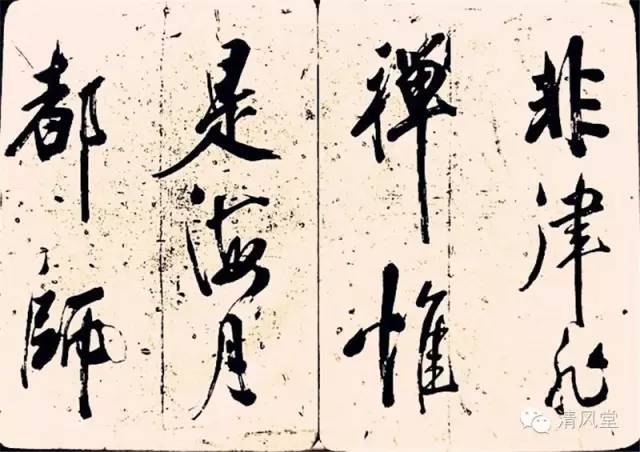 非律非
禪惟
是海月
都師
清风堂